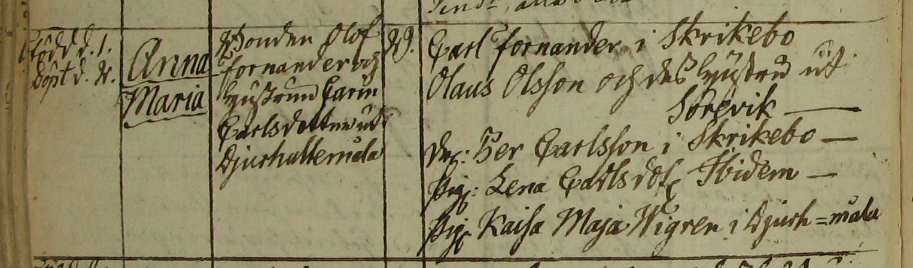 Född d. 1.
Döpt d. 2.
Anna
Maria
Bonden Olof
Fornander och
Hustrun Carin
Carlsdotter ut
Djurhultemåla
Carl Fornander i Skrikebo
Olaus Olsson och des Hustru ut
Storevik
Dr: Per Carlsson i Skrikebo
Pig: Lena Carlsdotr Ibidem
Pig: Kaisa Maja Wigren i Djurh=måla